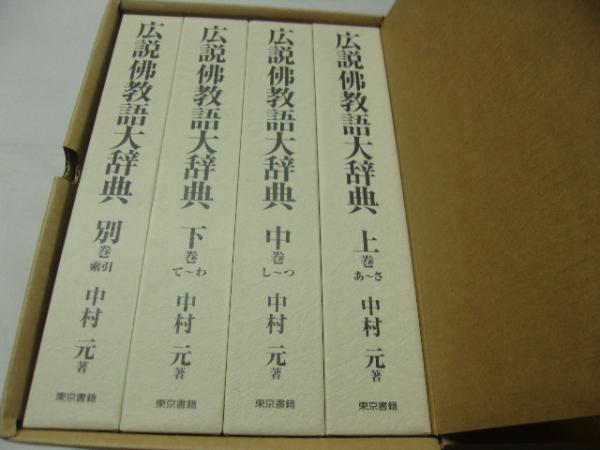 広説佛教語大辞典
上巻
あ〜さ
中村 元 著
東京書籍
広説佛教語大辞典
中巻
し〜つ
中村 元 著
東京書籍
広説佛教語大辞典
下巻
て〜わ
中村 元 著
東京書籍
広説佛教語大辞典
別巻
索引
中村 元 著
東京書籍